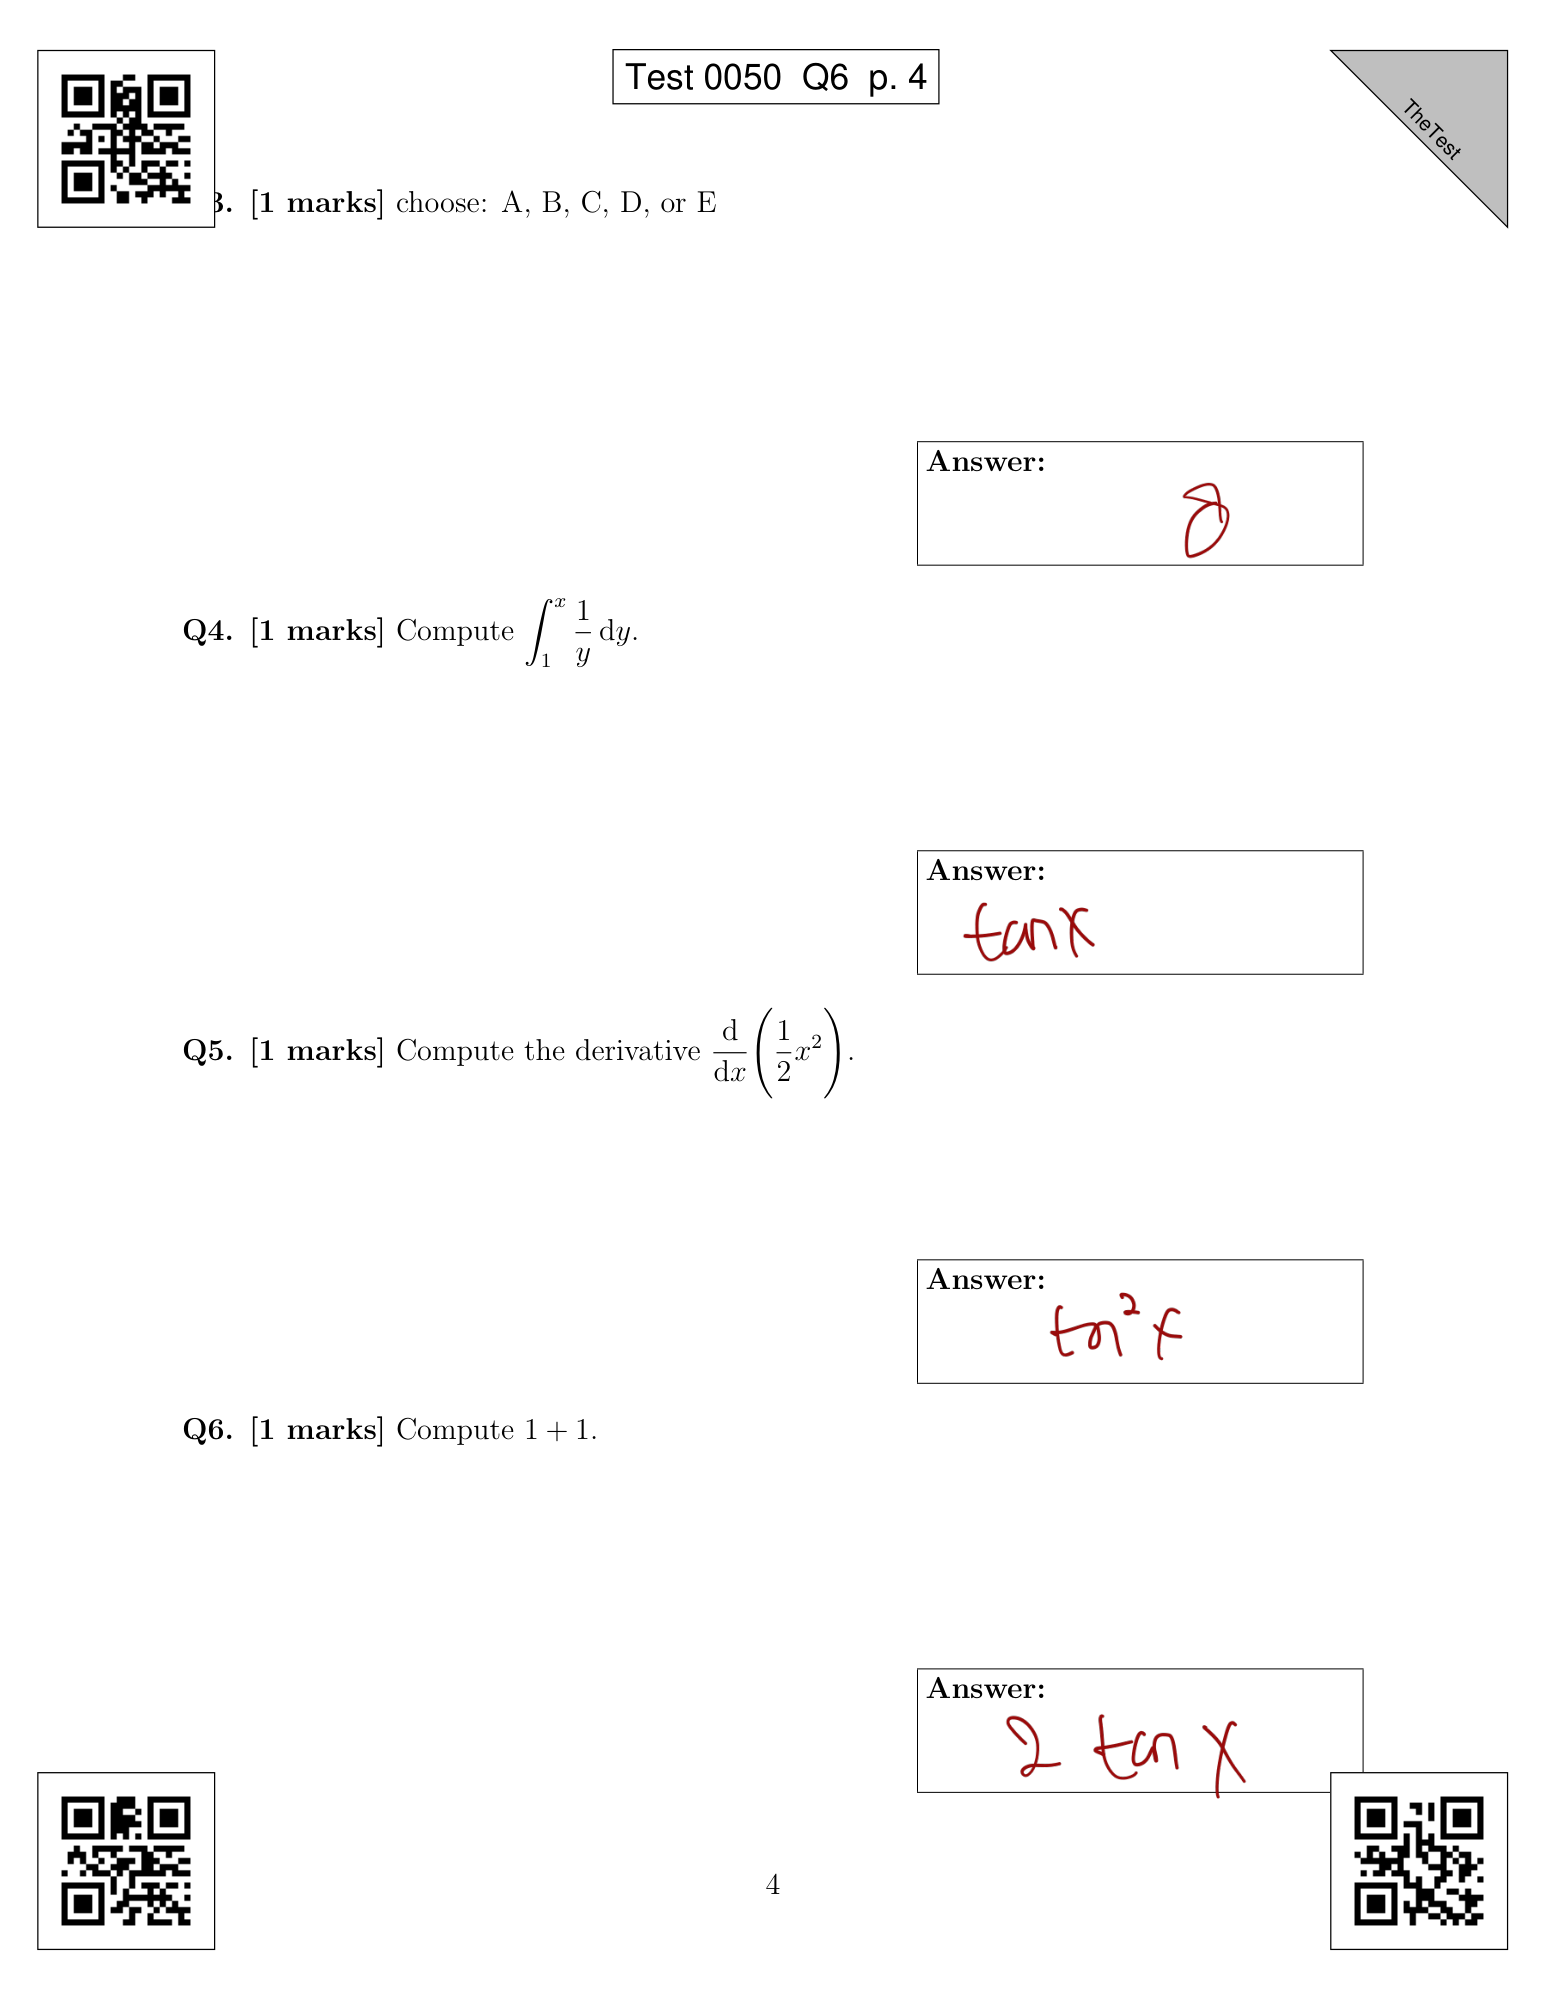 Test 0050 Q6 p. 4
TheTest
3. [1 marks] choose: A, B, C, D, or E
Answer:
8
Q4. [1 marks] Compute ∫₁ˣ 1/y dy.
Answer:
tan x
Q5. [1 marks] Compute the derivative d/dx (1/2 x²).
Answer:
tan² x
Q6. [1 marks] Compute 1 + 1.
Answer:
2 tan x
4